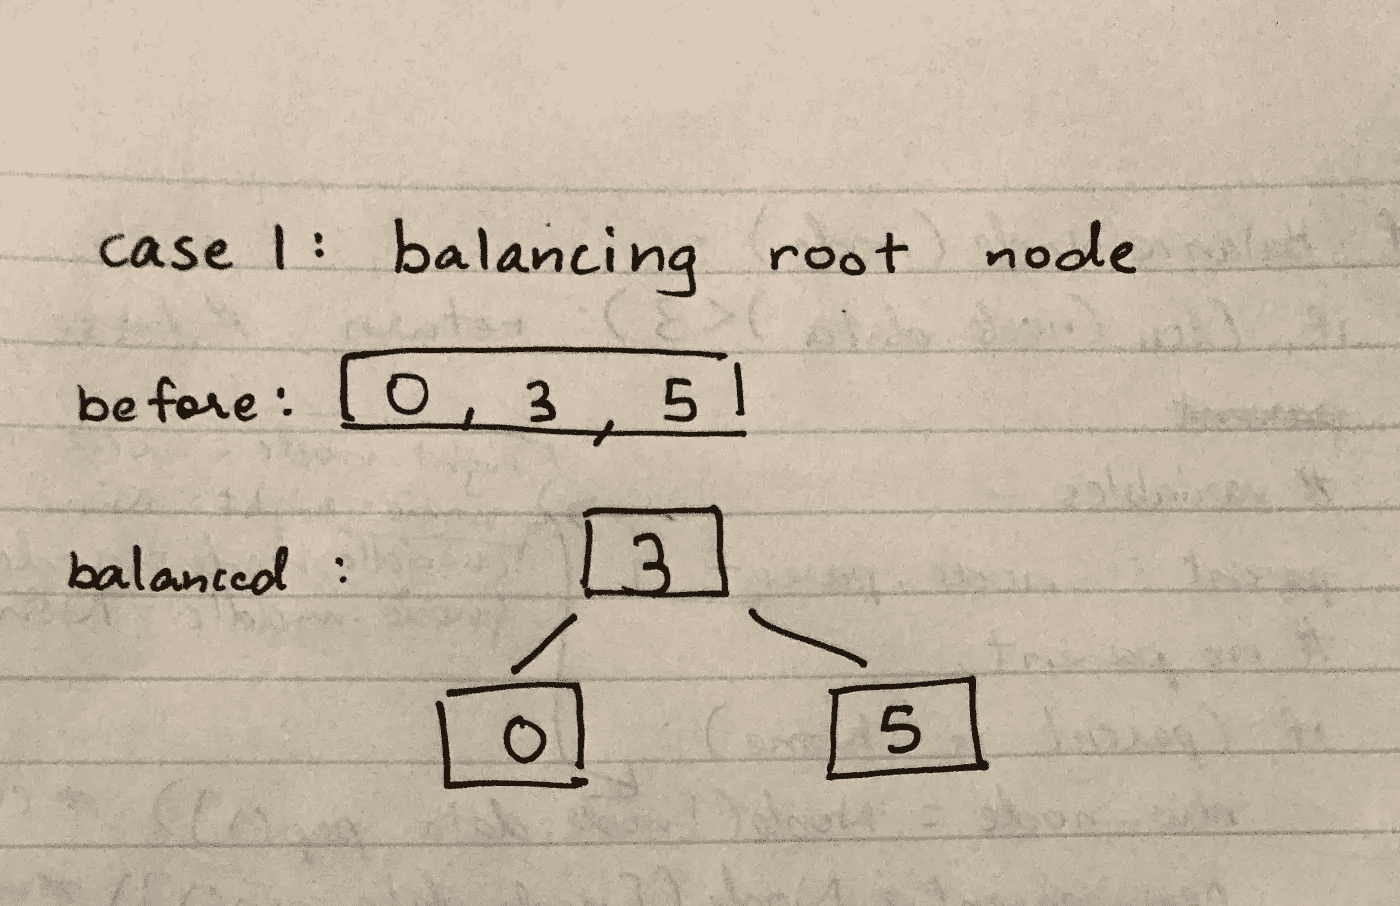 case 1: balancing root node
before: 0, 3, 5
balanced :
3
0 5